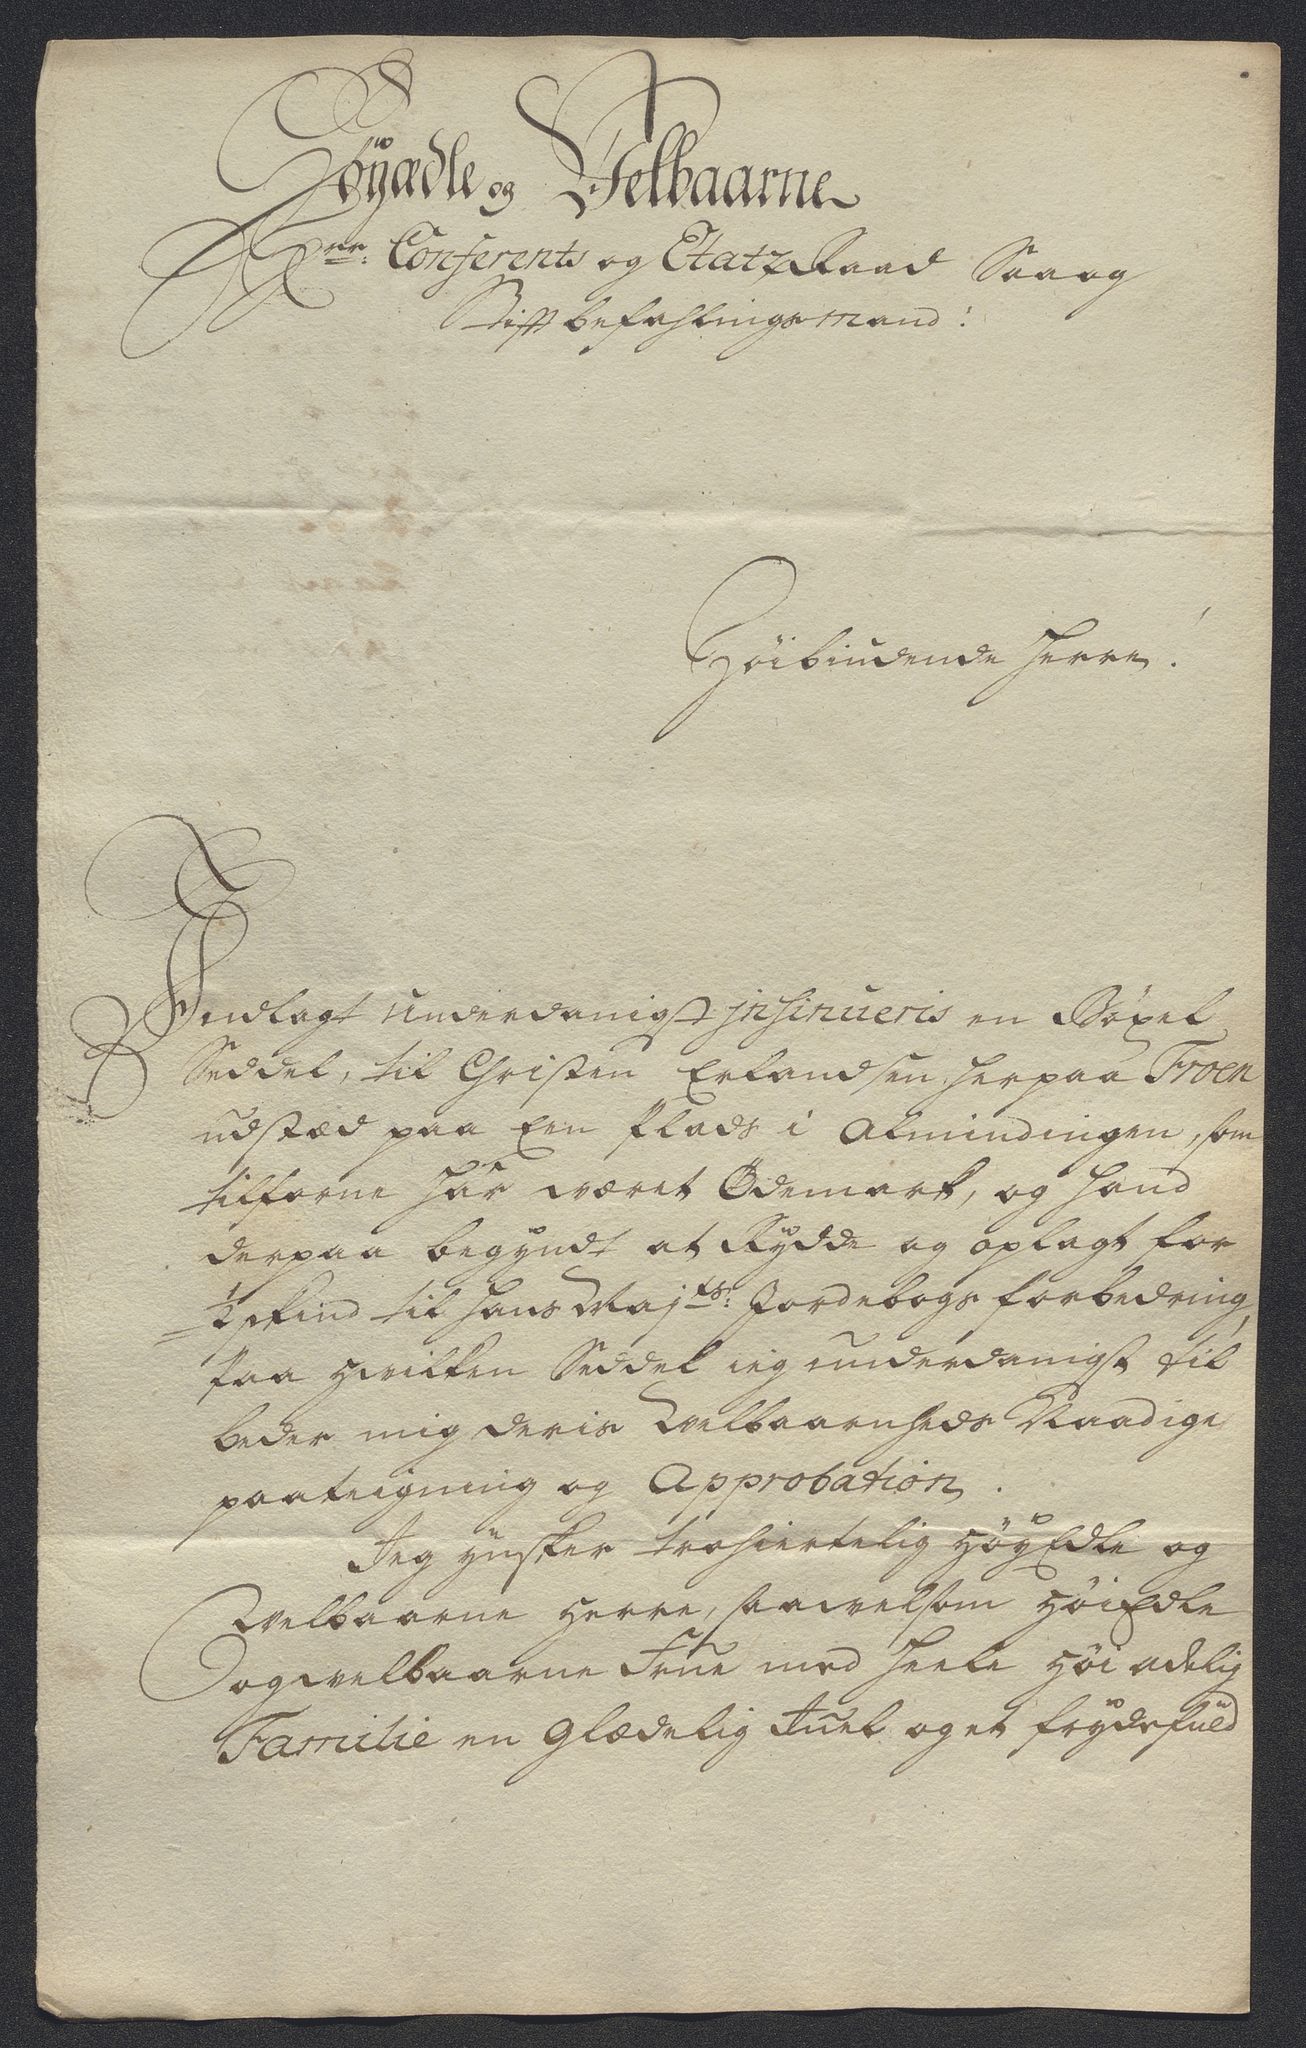 Höyædle og Velbaarne
Hrr: Conferents og EtatzRaad Saa og
Stiftbefahlingsmand!
Höibiudende Herre!
Indlagt underdanigst insinueris en Böxel
Seddel, til Christen Erlandsen her paa Froen
udstæd paa Een Plads i Almindingen, som
tilforne har været Ödemark, og hand
derpaa begÿndt at Rÿdde og oplagt for
1/2 skind til Hans Majts: Jordebogs forbedring,
paa hvilken Seddel ieg underdanigst til
beder mig deris Velbaarnheds Naadige
paateigning og Approbation.
Jeg ynsker trohiertelig HöyEdle og
Velbaarne Herre, saavelsom HöiEdle
og velbaarne Frue med heele Höi adelig
Familie en Glædelig Juel og et frÿdefuld